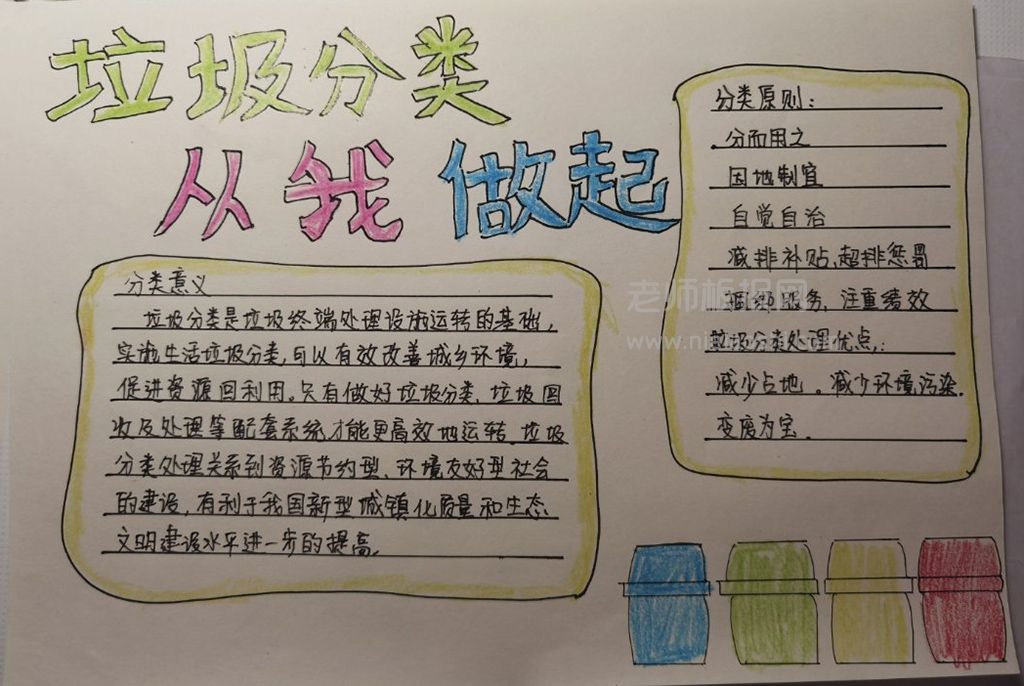 垃圾分类
从我做起
分类意义
垃圾分类是垃圾终端处理设施运转的基础,
实施生活垃圾分类,可以有效改善城乡环境,
促进资源回利用。只有做好垃圾分类、垃圾回
收及处理等配套系统才能更高效地运转.垃圾
分类处理关系到资源节约型、环境友好型社会
的建设,有利于我国新型城镇化质量和生态
文明建设水平进一步的提高.
分类原则:
分而用之
因地制宜
自觉自治
减排补贴、超排惩罚
服务,注重绩效
垃圾分类处理优点:
减少占地。减少环境污染.
变废为宝.
老师板报网